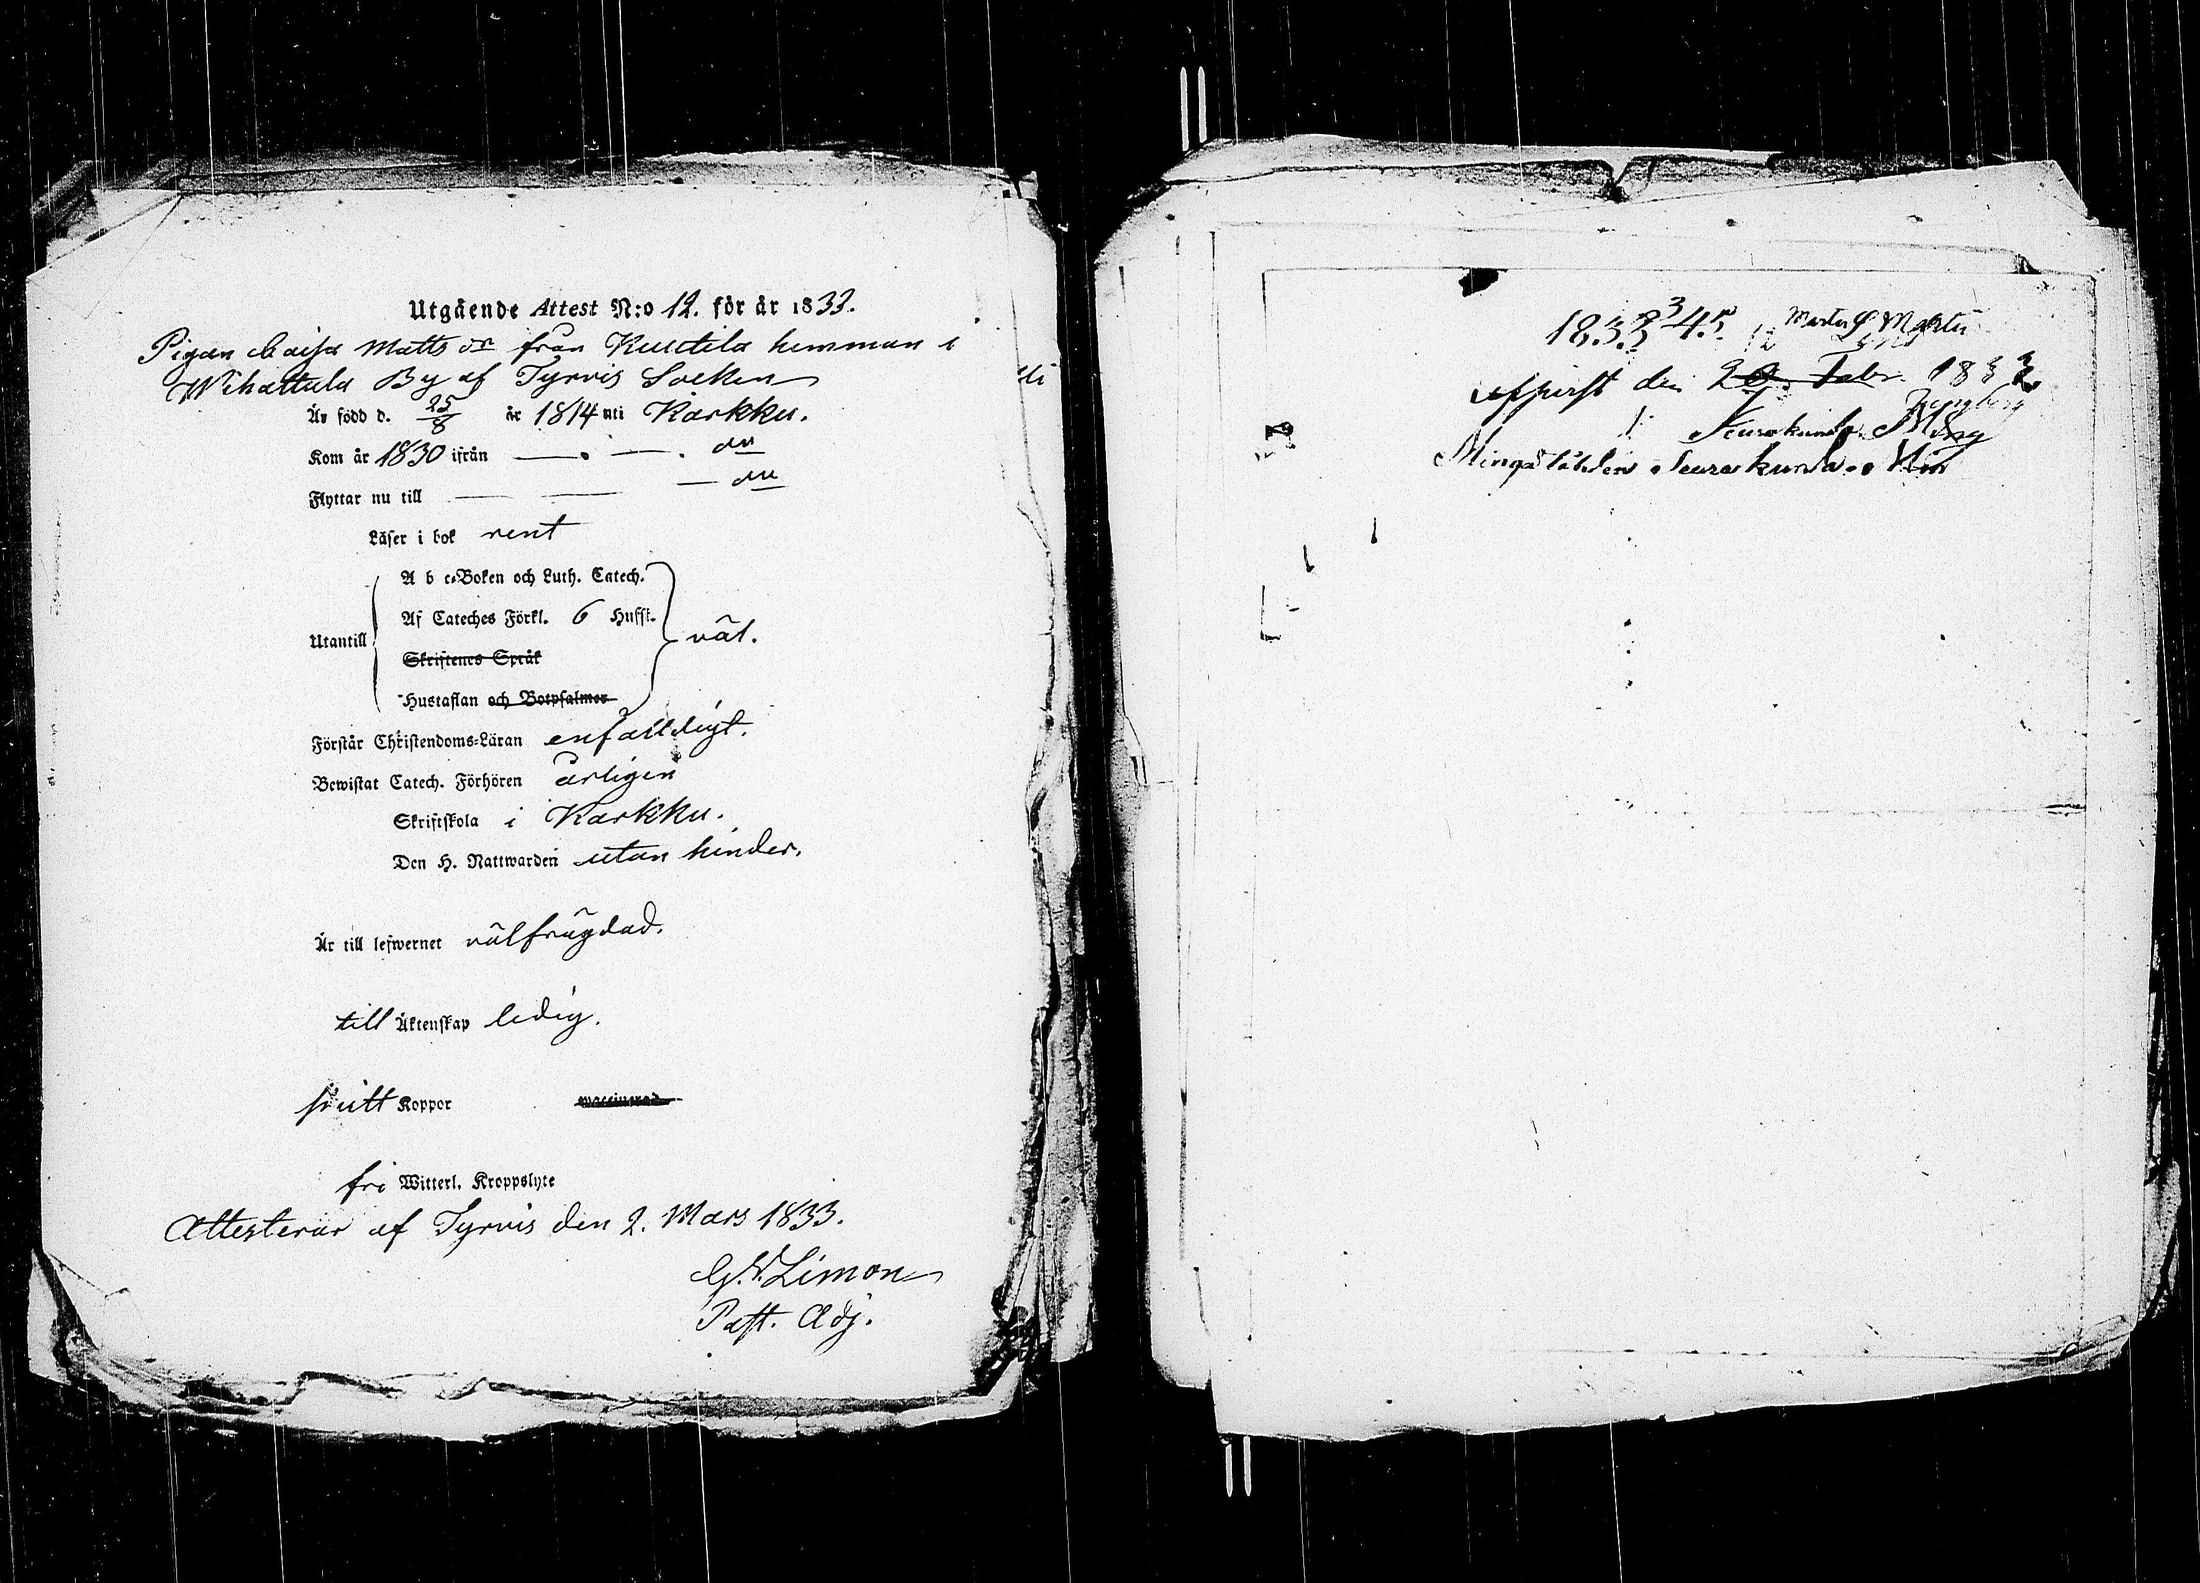 Utgående Attest N:o 12. för år 1833.
Pigan Caisa Matts dr från Kuutila hemman i
Wihattula By af Tyrvis Socken
Är född d. 25/8 år 1814 uti Karkku.
Kom år 1830 ifrån — . — . du
Flyttar nu till — — — du
Läser i bok rent
A b c-Boken och Luth. Catech.
Af Cateches Förkl. 6 Hufst.
Utantill väl.
Skriftenes Språk
Hustaflan och Botpsalmer
Förstår Christendoms-Läran enfalldigt.
Bewistat Catech. Förhören årligen
Skriftskola i Karkku.
Den H. Nattwarden utan hinder.
Är till lefwernet välfrägdad.
till Äktenskap ledig.
haft Koppor waccinerad
fri Witterl. Kroppslyte
Attesterar af Tyrvis den 2. Mars 1833.
G. Limon
Past. Adj.
den Febr. 183
Seurakunda
Seurakunda